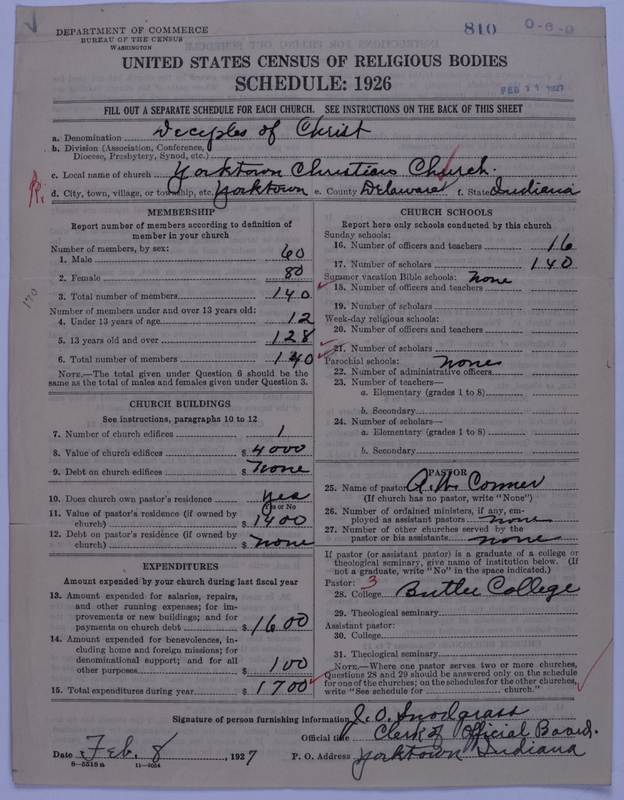 DEPARTMENT OF COMMERCE
BUREAU OF THE CENSUS
WASHINGTON
810
0-6-0
UNITED STATES CENSUS OF RELIGIOUS BODIES
SCHEDULE: 1926
FEB 11 1927
FILL OUT A SEPARATE SCHEDULE FOR EACH CHURCH. SEE INSTRUCTIONS ON THE BACK OF THIS SHEET
a. Denomination Deciples of Christ
b. Division (Association, Conference, Diocese, Presbytery, Synod, etc.)
c. Local name of church Yorktown Christian Church.
d. City, town, village, or township, etc. Yorktown e. County Delaware f. State Indiana
MEMBERSHIP
Report number of members according to definition of member in your church
Number of members, by sex:
1. Male 60
2. Female 80
3. Total number of members 140
170
Number of members under and over 13 years old:
4. Under 13 years of age 12
5. 13 years old and over 128
6. Total number of members 140
NOTE.—The total given under Question 6 should be the same as the total of males and females given under Question 3.
CHURCH BUILDINGS
See instructions, paragraphs 10 to 12
7. Number of church edifices 1
8. Value of church edifices $ 4000
9. Debt on church edifices $ None
10. Does church own pastor's residence yes
Yes or No
11. Value of pastor's residence (if owned by church) $ 1400
12. Debt on pastor's residence (if owned by church) $ none
EXPENDITURES
Amount expended by your church during last fiscal year
13. Amount expended for salaries, repairs, and other running expenses; for improvements or new buildings; and for payments on church debt $ 1600
14. Amount expended for benevolences, including home and foreign missions; for denominational support; and for all other purposes $ 100
15. Total expenditures during year $ 1700
CHURCH SCHOOLS
Report here only schools conducted by this church
Sunday schools:
16. Number of officers and teachers 16
17. Number of scholars 140
Summer vacation Bible schools: none
18. Number of officers and teachers
19. Number of scholars
Week-day religious schools:
20. Number of officers and teachers
21. Number of scholars
Parochial schools: none
22. Number of administrative officers
23. Number of teachers—
a. Elementary (grades 1 to 8)
b. Secondary
24. Number of scholars—
a. Elementary (grades 1 to 8)
b. Secondary
PASTOR
25. Name of pastor A. W. Conner
(If church has no pastor, write "None")
26. Number of ordained ministers, if any, employed as assistant pastors none
27. Number of other churches served by the pastor or his assistants none
If pastor (or assistant pastor) is a graduate of a college or theological seminary, give name of institution below. (If not a graduate, write "No" in the space indicated.)
Pastor: 3
28. College Butler College
29. Theological seminary
Assistant pastor:
30. College
31. Theological seminary
NOTE.—Where one pastor serves two or more churches, Questions 28 and 29 should be answered only on the schedule for one of the churches; on the schedules for the other churches, write "See schedule for church."
Signature of person furnishing information J. O. Snodgrass
Official title Clerk of Official Board.
Date Feb. 8, 1927
P. O. Address Yorktown Indiana
8—5518a
11—9054